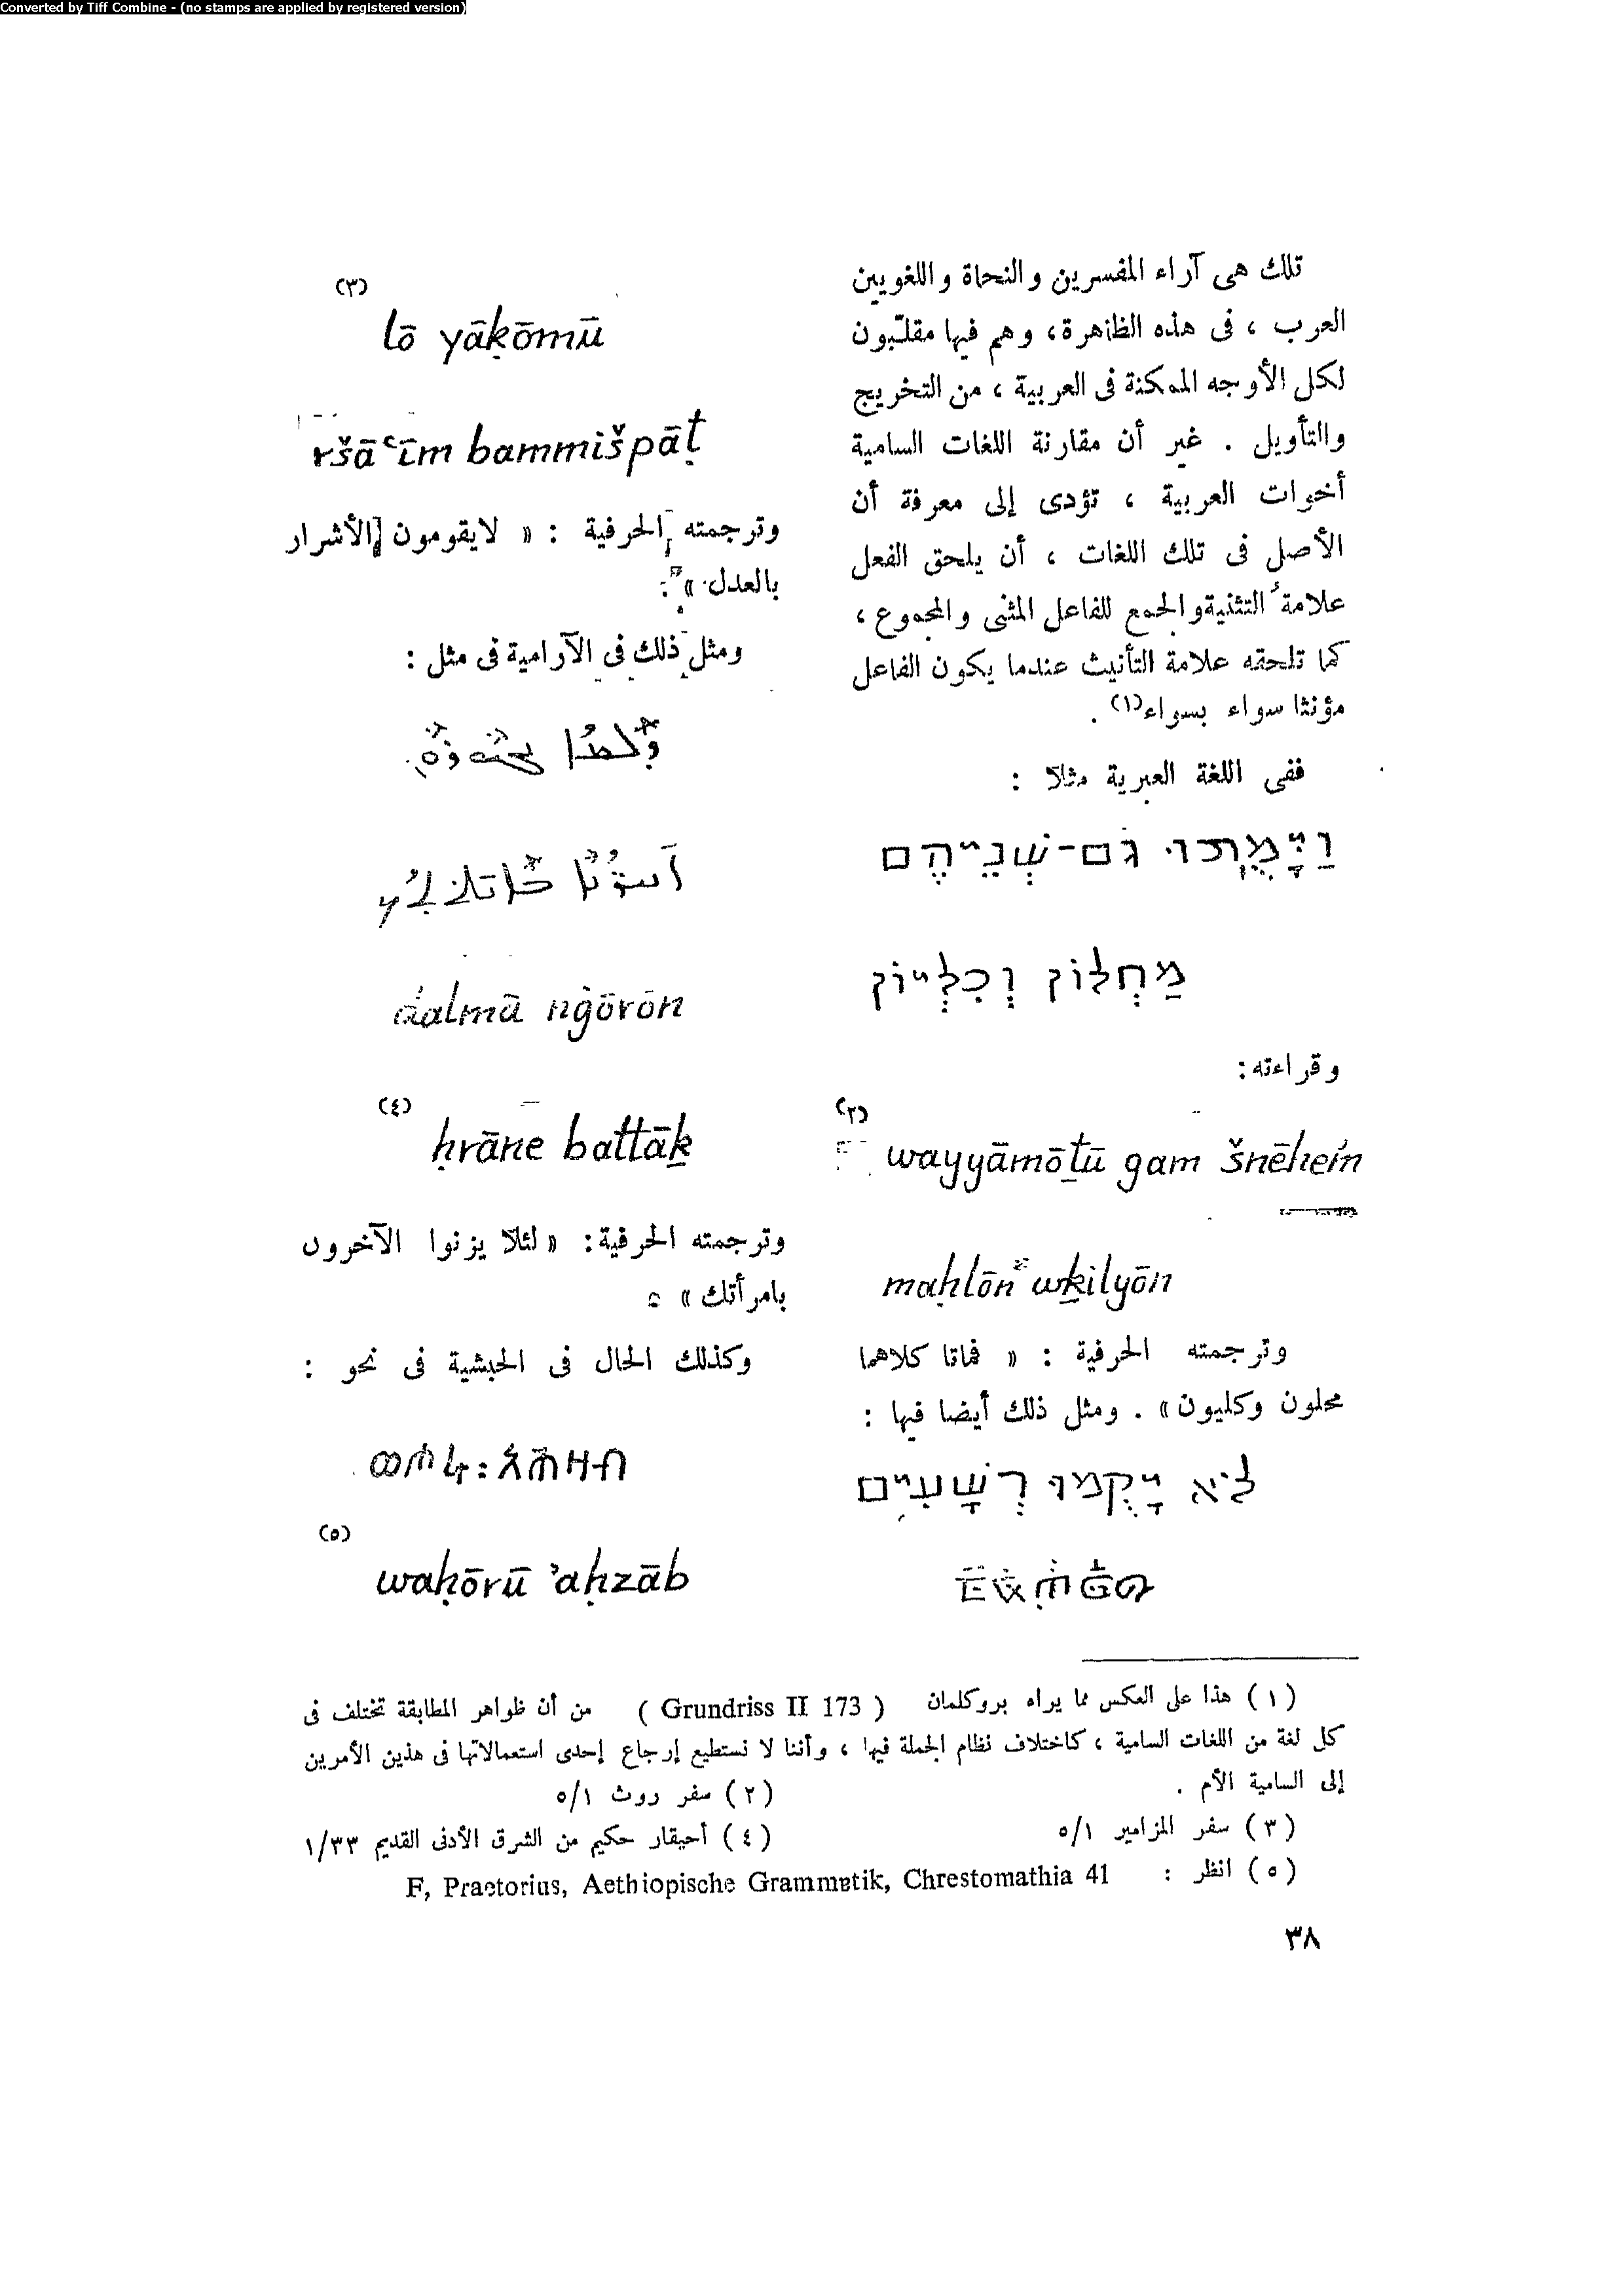 Converted by Tiff Combine - (no stamps are applied by registered version)
تلك هى آراء المفسرين والنحاة واللغويين
العرب ، فى هذه الظاهرة، وهم فيها مقلّبون
لكل الأوجه الممكنة فى العربية ، من التخريج
والتأويل . غير أن مقارنة اللغات السامية
أخوات العربية ، تؤدى إلى معرفة أن
الأصل فى تلك اللغات ، أن يلحق الفعل
علامةُ التثنية والجمع للفاعل المثنى والمجموع ،
كما تلحقه علامة التأنيث عندما يكون الفاعل
مؤنثا سواء بسواء(١) .
ففى اللغة العبرية مثلا :
וַיָּמֻתוּ גם-שְׁנֵיהֶם
מַחְלוֹן וְכִלְיוֹן
وقراءته:
(٢)
wayyāmōṯū gam šnēhem
maḥlōn wḵilyōn
وترجمته الحرفية : « فماتا كلاهما
محلون وكليون» . ومثل ذلك أيضا فيها :
לֹא יָקֻמוּ רְשָׁעִים
(٣)
lō yāḳōmū
ršāʿīm bammišpāṭ
وترجمته الحرفية : « لايقومون الأشرار
بالعدل »
ومثل ذلك فى الآرامية فى مثل :
dalmā nġōrōn
(٤)
ḥrāne battāḵ
وترجمته الحرفية: « لئلا يزنوا الآخرون
بامرأتك »
وكذلك الحال فى الحبشية فى نحو :
ወሖሩ፡አሕዛብ
(٥)
waḥōrū ʾaḥzāb
(١) هذا على العكس مما يراه بروكلمان ( Grundriss II 173 ) من أن ظواهر المطابقة تختلف فى
كل لغة من اللغات السامية ، كاختلاف نظام الجملة فيها ، وأننا لا نستطيع إرجاع إحدى استعمالاتها فى هذين الأمرين
إلى السامية الأم .
(٢) سفر روث ٥/١
(٣) سفر المزامير ٥/١
(٤) أحيقار حكيم من الشرق الأدنى القديم ١/٣٣
(٥) انظر : F, Praetorius, Aethiopische Grammatik, Chrestomathia 41
٣٨